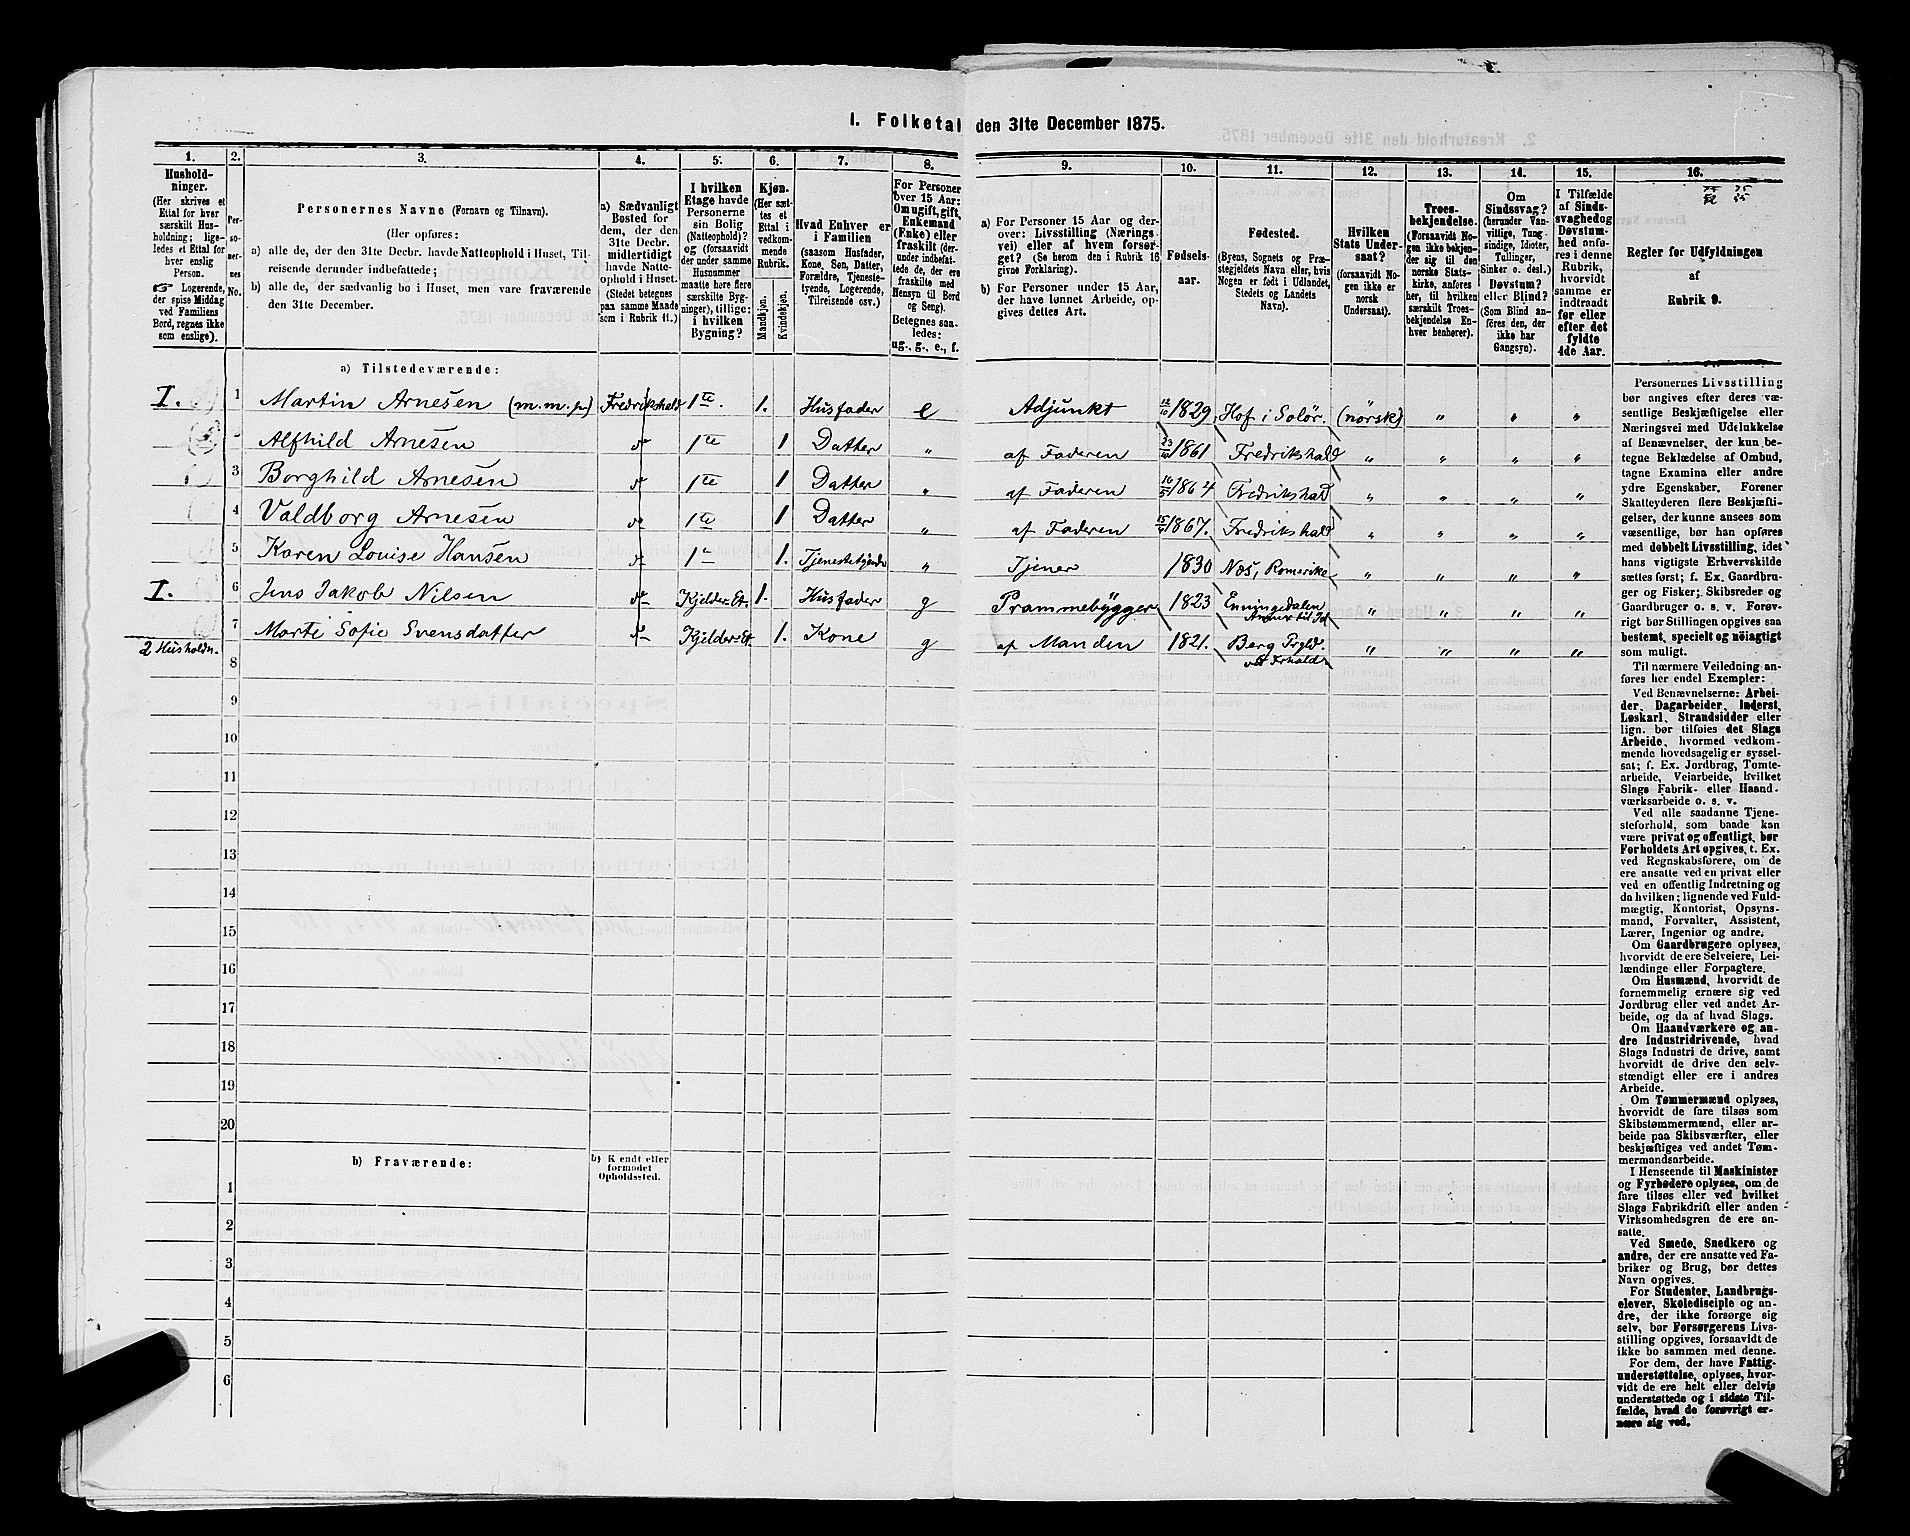 1. Folketal den 31te December 1875.
1. 2. 3. 4. 5. 6. 7. 8. 9. 10. 11. 12. 13. 14. 15. 16.
Hushold-
ninger.
(Her skrives et
Ettal for hver
særskilt Hus-
holdning; lige-
ledes et Ettal for
hver enslig
Person.
☞ Logerende,
der spise Middag
ved Familiens
Bord, regnes ikke
som enslige).
Per-
so-
ner-
nes
No.
Personernes Navne (Fornavn og Tilnavn).
(Her opføres:
a) alle de, der den 31te Decbr. havde Natteophold i Huset, Til-
reisende derunder indbefattede;
b) alle de, der sædvanlig bo i Huset, men vare fraværende
den 31te December.
a) Sædvanligt
Bosted for
dem, der den
31te Decbr.
midlertidigt
havde Natte-
ophold i Huset.
(Stedet betegnes
paa samme Maade
som i Rubrik 11.)
I hvilken
Etage havde
Personerne
sin Bolig
(Natteophold)?
og (forsaavidt
der under samme
Husnummer
maatte høre flere
særskilte Byg-
ninger), tillige:
i hvilken
Bygning?
Kjøn.
(Her sæt-
tes et
Ettal i
vedkom-
mende
Rubrik.
Mandkjøn.
Kvindekjøn.
Hvad Enhver er
i Familien
(saasom Husfader,
Kone, Søn, Datter,
Forældre, Tjeneste-
tyende, Logerende,
Tilreisende osv.)
For Personer
over 15 Aar:
Om ugift, gift,
Enkemand
(Enke) eller
fraskilt (der-
under indbefat-
tede de, der ere
fraskilte med
Hensyn til Bord
og Seng).
Betegnes saa-
ledes:
ug., g., e., f.
a) For Personer 15 Aar og der-
over: Livsstilling (Nærings-
vei) eller af hvem forsør-
get? (Se herom den i Rubrik 16
givne Forklaring).
b) For Personer under 15 Aar,
der have lønnet Arbeide, op-
gives dettes Art.
Fødsels-
aar.
Fødested.
(Byens, Sognets og Præ-
stegjeldets Navn eller, hvis
Nogen er født i Udlandet,
Stedets og Landets
Navn).
Hvilken
Stats Under-
saat?
(forsaavidt No-
gen ikke er
norsk
Undersaat).
Troes-
bekjendelse.
(Forsaavidt No-
gen ikke bekjen-
der sig til den
norske Stats-
kirke, anføres
her, til hvilken
særskilt Troes-
bekjendelse En-
hver henhører).
Om
Sindssvag?
(herunder Van-
vittige, Tung-
sindige, Idioter,
Tullinger,
Sinker o. desl.)
Døvstum?
eller Blind?
(Som Blind an-
føres den, der
ikke har
Gangsyn).
I Tilfælde
af Sinds-
svaghed og
Døvstum-
hed anfø-
res i denne
Rubrik,
hvorvidt
samme er
indtraadt
før eller
efter det
fyldte
4de Aar.
Regler for Udfyldningen
af
Rubrik 9.
a) Tilstedeværende:
I. 1 Martin Arnesen (m.m.p.) Fredrikshald 1te. 1. Husfader e Adjunkt 1829 Hof i Solør. (norsk) " " "
Alfhild Arnesen 1te 1 Datter " af Faderen 1861 Fredrikshald " " " "
3 Borghild Arnesen 1te 1 Datter " af Faderen 1864 Fredrikshald " " " "
4 Valdborg Arnesen 1te 1 Datter " af Faderen 1867. Fredrikshald " " " "
5 Karen Louise Hansen 1. Tjenestetyende " Tjener 1830 Næs, Romerike " " " "
I. 6 Jens Jakob Nilsen Kjelder-Et. 1. Husfader g Prammebygger 1823 Enningedalen Annex til Id " " " "
7 Marte Sofie Svensdatter Kjelder-Et. 1. Kone g af Manden 1821. Berg Prgld. " " " "
2 Husholdn.
8
9
10
11
12
13
14
15
16
17
18
19
20
b) Fraværende:
b) Kjendt eller
formodet
Opholdssted.
1
2
3
4
5
6
Personernes Livsstilling
bør angives efter deres væ-
sentlige Beskjæftigelse eller
Næringsvei med Udelukkelse
af Benævnelser, der kun be-
tegne Beklædelse af Ombud,
tagne Examina eller andre
ydre Egenskaber. Forener
Skatteyderen flere Beskjæfti-
gelser, der kunne ansees som
væsentlige, bør han opføres
med dobbelt Livsstilling, idet
hans vigtigste Erhvervskilde
sættes først; f. Ex. Gaardbru-
ger og Fisker; Skibsreder og
Gaardbruger o. s. v. Forøv-
rigt bør Stillingen opgives saa
bestemt, specielt og nøiagtigt
som muligt.
Til nærmere Veiledning an-
føres her endel Exempler:
Ved Benævnelserne: Arbei-
der, Dagarbeider, Inderst,
Løskarl, Strandsidder eller
lign. bør tilføies det Slags
Arbeide, hvormed vedkom-
mende hovedsagelig er syssel-
sat; f. Ex. Jordbrug, Tomte-
arbeide, Veiarbeide, hvilket
Slags Fabrik- eller Haand-
værksarbeide o. s. v.
Ved alle saadanne Tjene-
steforhold, som baade kan
være privat og offentligt, bør
Forholdets Art opgives, t. Ex.
ved Regnskabsførere, om de
ere ansatte ved en privat eller
ved en offentlig Indretning og
da hvilken; lignende ved Fuld-
mægtig, Kontorist, Opsyns-
mand, Forvalter, Assistent,
Lærer, Ingeniør og andre.
Om Gaardbrugere oplyses,
hvorvidt de ere Selveiere, Lei-
lændinge eller Forpagtere.
Om Husmænd, hvorvidt de
fornemmelig ernære sig ved
Jordbrug eller ved andet Ar-
beide, og da af hvad Slags.
Om Haandværkere og an-
dre Industridrivende, hvad
Slags Industri de drive, samt
hvorvidt de drive den selv-
stændigt eller ere i andres
Arbeide.
Om Tømmermænd oplyses,
hvorvidt de fare tilsøs som
Skibstømmermænd, eller ar-
beide paa Skibsværfter, eller
beskjæftiges ved andet Tøm-
mermandsarbeide.
I Henseende til Maskinister
og Fyrbødere oplyses, om de
fare tilsøs eller ved hvilket
Slags Fabrikdrift eller anden
Virksomhedsgren de ere an-
satte.
Ved Smede, Snedkere og
andre, der ere ansatte ved Fa-
briker og Brug, bør dettes
Navn opgives.
For Studenter, Landbrugs-
elever, Skoledisciple og an-
dre, der ikke forsørge sig
selv, bør Forsørgerens Livs-
stilling opgives, forsaavidt de
ikke bo sammen med denne.
For dem, der have Fattig-
understøttelse, oplyses, hvor-
vidt de ere helt eller delvis
understøttede og i sidste Til-
fælde, hvad de forøvrigt er-
nære sig ved.